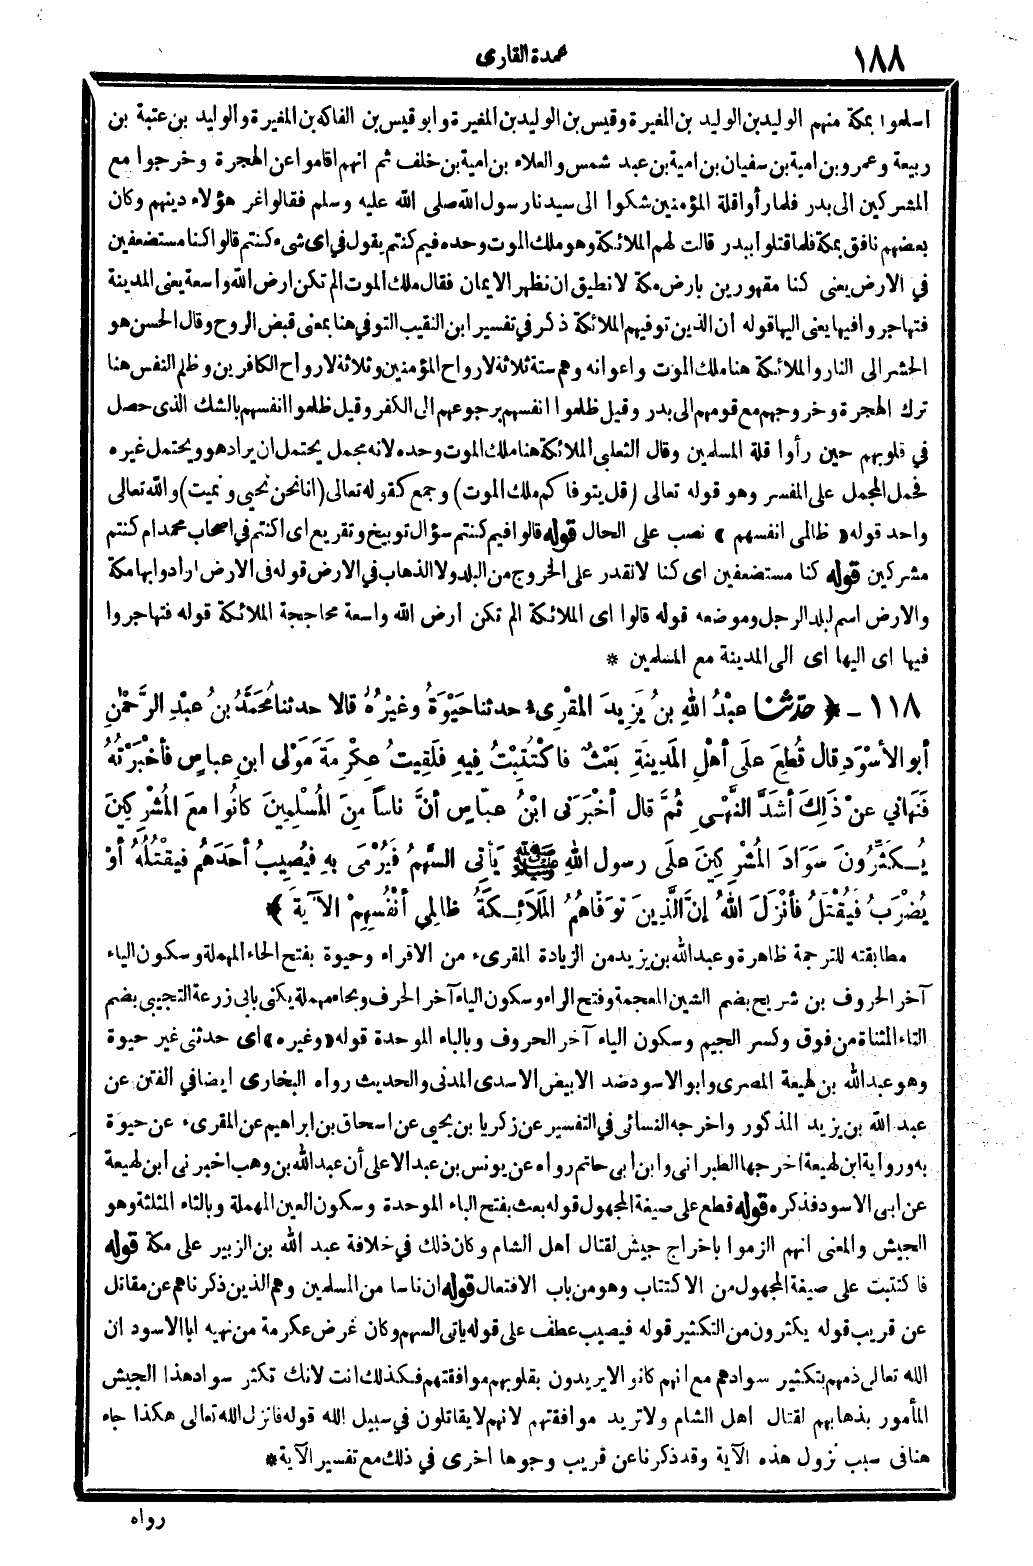 ١٨٨
عمدة القارى
اسلموا بمكة منهم الوليد بن الوليد بن المغيرة وقيس بن الوليد بن المغيرة وابو قيس بن الفاكه بن المغيرة والوليد بن عتبة بن
ربيعة وعمرو بن امية بن سفيان بن امية بن عبد شمس والعلاء بن امية بن خلف ثم انهم اقاموا عن الهجرة وخرجوا مع
المشركين الى بدر فلما رأوا قلة المؤمنين شكوا الى سيدنا رسول الله صلى الله عليه وسلم فقالوا غر هؤلاء دينهم وكان
بعضهم نافق بمكة فلما قتلوا ببدر قالت لهم الملائكة وهو ملك الموت وحده فيم كنتم يقول في اى شىء كنتم قالوا كنا مستضعفين
في الارض يعنى كنا مقهورين بارض مكة لا نطيق ان نظهر الايمان فقال ملك الموت الم تكن ارض الله واسعة يعنى المدينة
فتهاجروا فيها يعنى اليها قوله أن الذين توفيهم الملائكة ذكر في تفسير ابن النقيب التوفي هنا بمعنى قبض الروح وقال الحسن هو
الحشر الى النار والملائكة هنا ملك الموت واعوانه وهم ستة ثلاثة لارواح المؤمنين وثلاثة لارواح الكافرين وظلم النفس هنا
ترك الهجرة وخروجهم مع قومهم الى بدر وقيل ظلموا انفسهم برجوعهم الى الكفر وقيل ظلموا انفسهم بالشك الذى حصل
في قلوبهم حين رأوا قلة المسلمين وقال الثعلبى الملائكة هنا ملك الموت وحده لانه مجمل يحتمل ان يراد هو ويحتمل غيره
فحمل المجمل على المفسر وهو قوله تعالى (قل يتوفاكم ملك الموت) وجمع كقوله تعالى (انا نحن نحيى ونميت) والله تعالى
واحد قوله «ظالمى انفسهم» نصب على الحال قوله قالوا فيم كنتم سؤال توبيخ وتقريع اى اكنتم في اصحاب محمد ام كنتم
مشركين قوله كنا مستضعفين اى كنا لا نقدر على الخروج من البلد ولا الذهاب في الارض قوله فى الارض ارادوا بها مكة
والارض اسم لبلد الرجل وموضعه قوله قالوا اى الملائكة الم تكن أرض الله واسعة محاججة الملائكة قوله فتهاجروا
فيها اى اليها اى الى المدينة مع المسلمين *
١١٨ - ﴿ حدّثنا عبْدُ اللهِ بنُ يَزِيدَ المقْرِىءُ حدثنا حَيْوَةُ وغيْرُهُ قالا حدثنا مُحَمَّدُ بنُ عبْدِ الرَّحْمٰنِ
أبو الأسْوَدِ قال قُطِعَ على أهْلِ المَدِينَةِ بَعْثٌ فاكْتُتِبْتُ فِيهِ فلَقِيتُ عِكْرِمَةَ مَوْلى ابنِ عباسٍ فأخْبَرْتُهُ
فَنَهاني عنْ ذَلِكَ أشَدَّ النَّهْىِ ثُمَّ قال أخْبَرَنى ابْنُ عبَّاسٍ أنَّ ناساً مِنَ المُسْلِمِينَ كانُوا معَ المُشْرِكِينَ
يُكَثِّرُونَ سَوَادَ المُشْرِكِينَ علَى رسولِ اللهِ ﷺ يَأتِى السَّهْمُ فَيُرْمَى بِهِ فيُصِيبُ أحَدَهُمْ فيقْتُلُهُ أوْ
يُضْرَبُ فَيُقْتَلُ فأنْزَلَ اللهُ إنَّ الَّذِينَ توَفَاهُمُ المَلَائِكَةُ ظالِمِي أنْفُسِهِمْ الآيَةَ ﴾
مطابقته للترجمة ظاهرة وعبد الله بن يزيد من الزيادة المقرىء من الاقراء وحيوة بفتح الحاء المهملة وسكون الياء
آخر الحروف بن شريح بضم الشين المعجمة وفتح الراء وسكون الياء آخر الحرف وبحاء مهملة يكنى بابى زرعة التجيبى بضم
التاء المثناة من فوق وكسر الجيم وسكون الياء آخر الحروف وبالباء الموحدة قوله «وغيره» اى حدثنى غير حيوة
وهو عبد الله بن لهيعة المصرى وابو الاسود ضد الابيض الاسدى المدنى والحديث رواه البخارى ايضا في الفتن عن
عبد الله بن يزيد المذكور واخرجه النسائى في التفسير عن زكريا بن يحيى عن اسحاق بن ابراهيم عن المقرىء عن حيوة
به ورواية ابن لهيعة اخرجها الطبرانى وابن ابى حاتم رواه عن يونس بن عبد الاعلى أن عبد الله بن وهب اخبرنى ابن لهيعة
عن ابى الاسود فذكره قوله قطع على صيغة المجهول قوله بعث بفتح الباء الموحدة وسكون العين المهملة وبالثاء المثلثة وهو
الجيش والمعنى انهم الزموا باخراج جيش لقتال أهل الشام وكان ذلك في خلافة عبد الله بن الزبير على مكة قوله
فاكتتبت على صيغة المجهول من الاكتتاب وهو من باب الافتعال قوله ان ناسا من المسلمين وهم الذين ذكرناهم عن مقاتل
عن قريب قوله يكثرون من التكثير قوله فيصيب عطف على قوله يأتى السهم وكان غرض عكرمة من نهيه ابا الاسود ان
الله تعالى ذمهم بتكثير سوادهم مع انهم كانوا لا يريدون بقلوبهم موافقتهم فكذلك انت لانك تكثر سواد هذا الجيش
المأمور بذهابهم لقتال اهل الشام ولا تريد موافقتهم لانهم لا يقاتلون في سبيل الله قوله فانزل الله تعالى هكذا جاء
هنا فى سبب نزول هذه الآية وقد ذكرنا عن قريب وجوها اخرى في ذلك مع تفسير الآية *
رواه